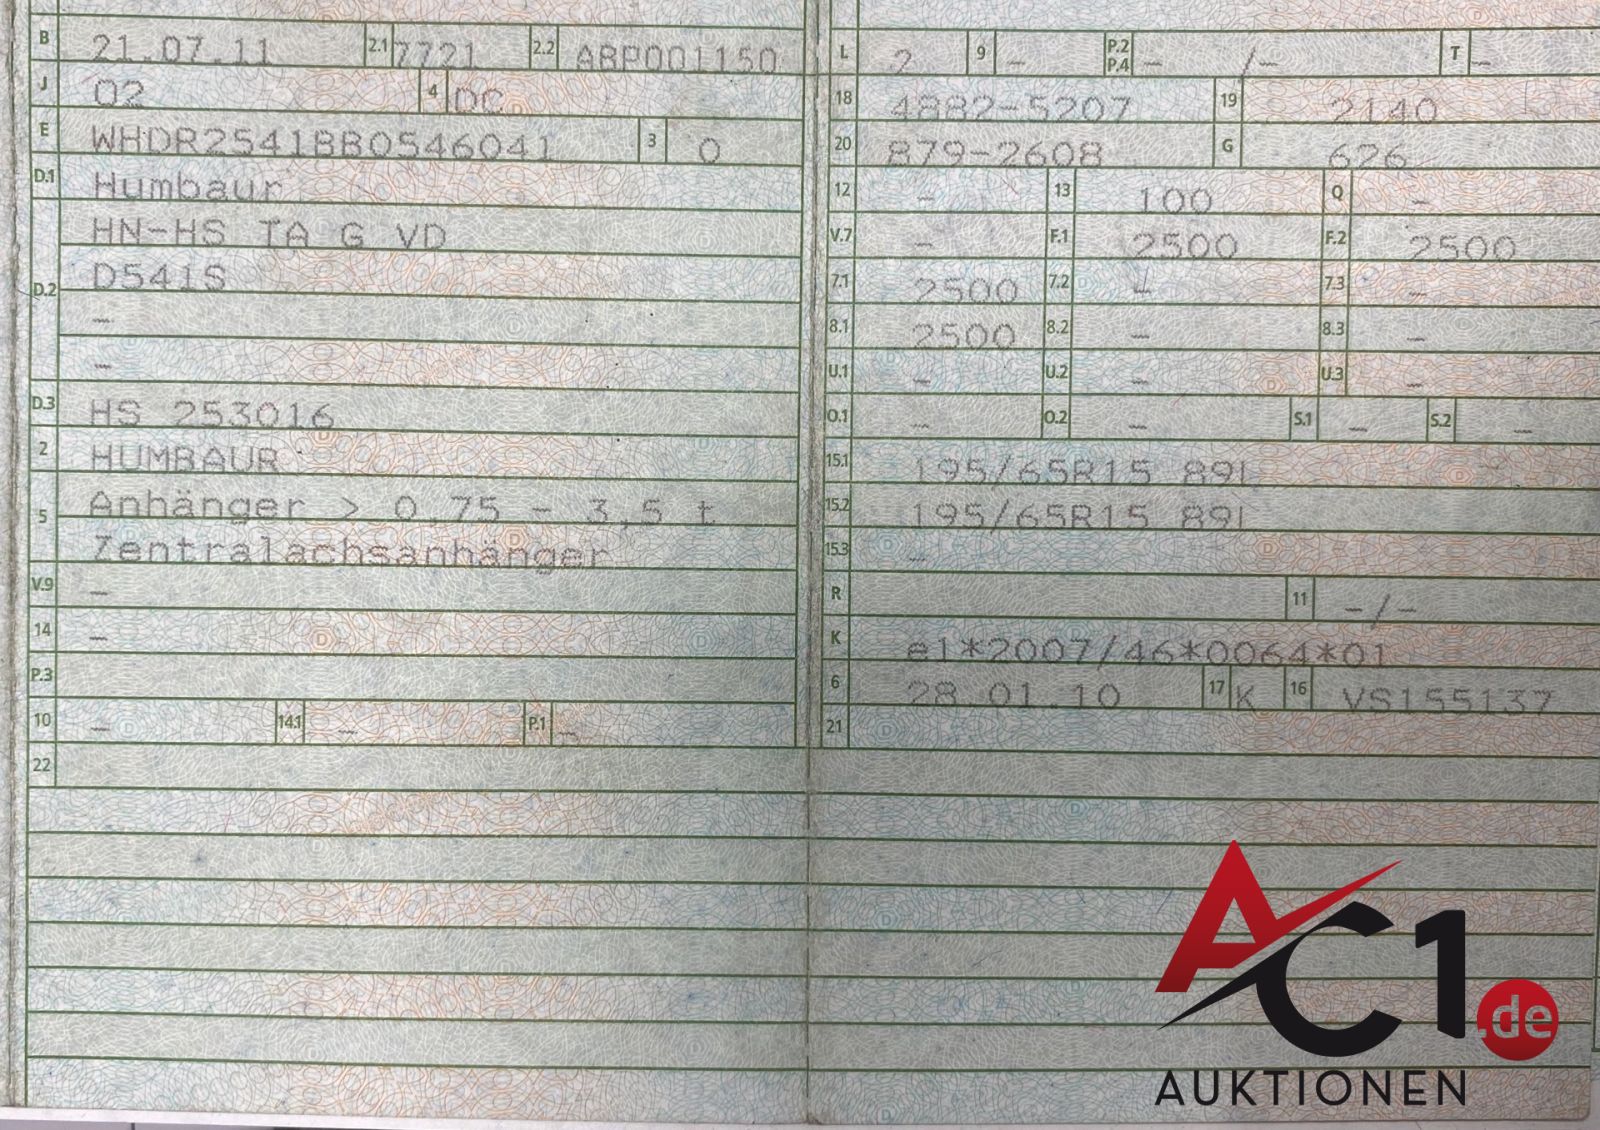 B 21.07.11 2.1 7721 2.2 ABP001150
J 02 4 DC
E WHDR2541BB0546041 3 0
D.1 Humbaur
HN-HS TA G VD
D.2 D541S
–
–
D.3 HS 253016
2 HUMBAUR
5 Anhänger > 0,75 - 3,5 t
Zentralachsanhänger
V.9 –
14 –
P.3
10 – 14.1 – P.1 –
22
L 2 9 – P.2 P.4 – /– T –
18 4882-5207 19 2140
20 879-2608 G 626
12 – 13 100 Q –
V.7 – F.1 2500 F.2 2500
7.1 2500 7.2 – 7.3 –
8.1 2500 8.2 – 8.3 –
U.1 – U.2 – U.3 –
O.1 – O.2 – S.1 – S.2 –
15.1 195/65R15 89L
15.2 195/65R15 89L
15.3 –
R 11 –/–
K e1*2007/46*0064*01
6 28.01.10 17 K 16 VS155137
21
AC1.de
AUKTIONEN